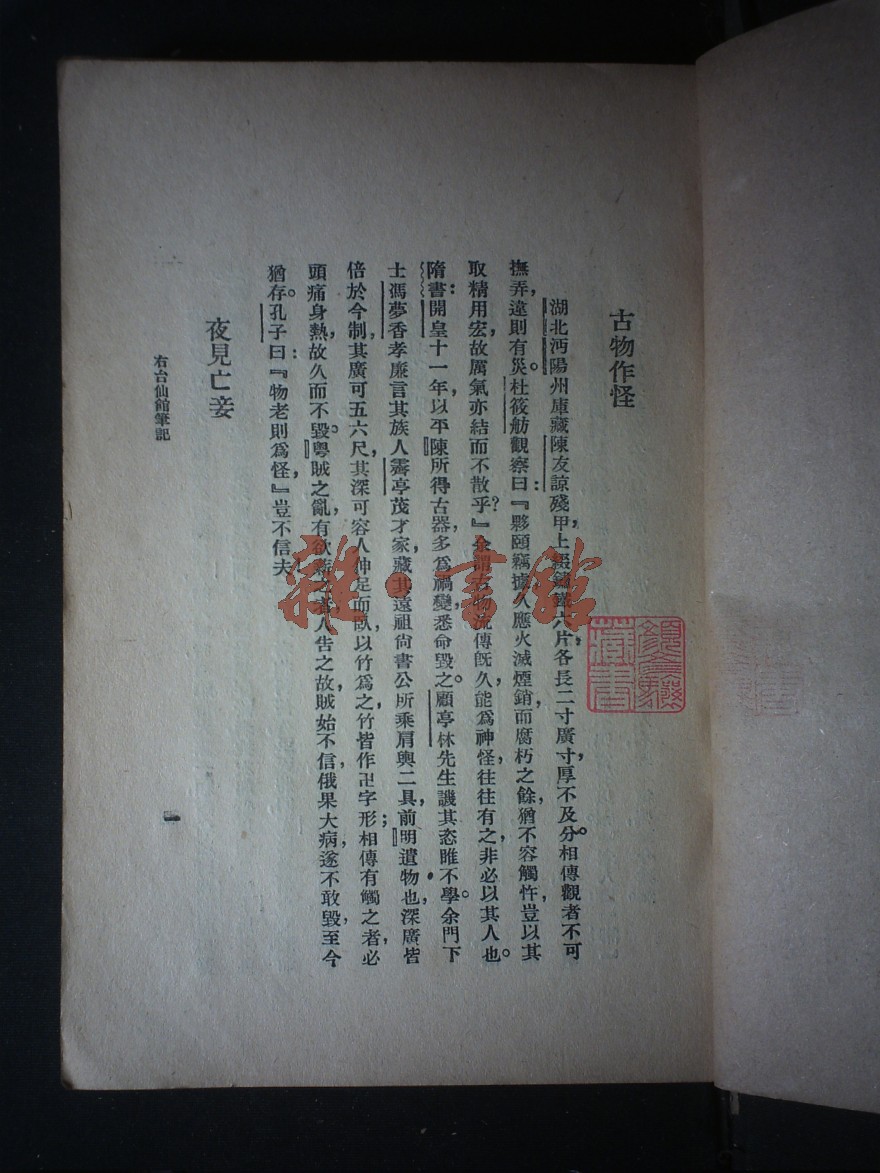 古物作怪
湖北沔陽州庫藏陳友諒殘甲，上綴 六片，各長二寸廣寸，厚不及分。相傳觀者不可
撫弄，違則有災。杜筱舫觀察曰：『夥頤竊據，久應火滅煙銷，而腐朽之餘，猶不容觸忤，豈以其
取精用宏，故厲氣亦結而不散乎？』余謂古物流傳旣久，能爲神怪，往往有之，非必以其人也。
隋書：開皇十一年，以平陳所得古器，多爲禍變，悉命毀之。顧亭林先生譏其恣睢不學。余門下
士馮夢香孝廉言其族人霽亭茂才家，藏其遠祖尙書公所乘肩輿二具，前明遺物也，深廣皆
倍於今制，其廣可五六尺，其深可容人伸足而臥，以竹爲之，竹皆作卍字形；相傳有觸之者，必
頭痛身熱，故久而不毀。粵賊之亂，有欲 者，人吿之故，賊始不信，俄果大病，遂不敢毀，至今
猶存。孔子曰：『物老則爲怪，』豈不信夫！
夜見亡妾
右台仙館筆記
一
藏書
雜·書館